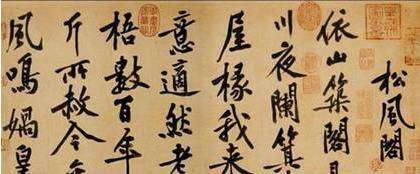 松風閣
依山築閣見
川夜闌箕
屋椽我来
意適然老
梧數百年
斤所赦今
風鳴媧皇